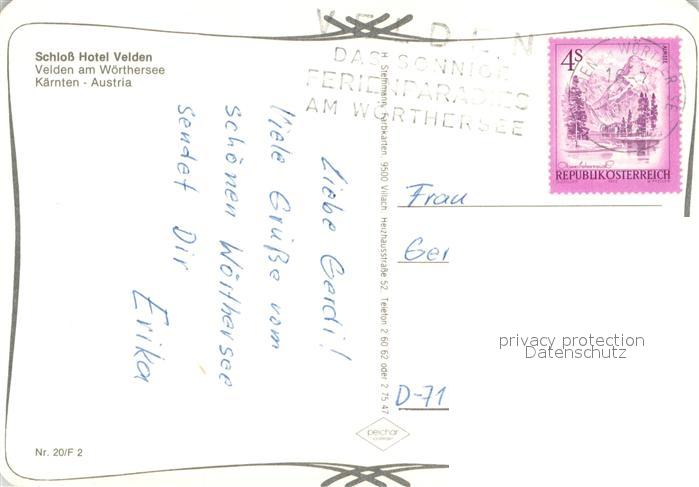 Schloß Hotel Velden
Velden am Wörthersee
Kärnten - Austria
VELDEN
DAS SONNIGE
FERIENPARADIES
AM WÖRTHERSEE
4S
REPUBLIK ÖSTERREICH
Liebe Gerdi!
Viele Grüße vom
schönen Wörthersee
sendet Dir
Erika
H. Steffmann, Farbkarten, 9500 Villach, Herzhausstraße 52, Telefon 2 60 62 oder 2 75 47
Frau
Ger
D-71
privacy protection
Datenschutz
Nr. 20/F 2